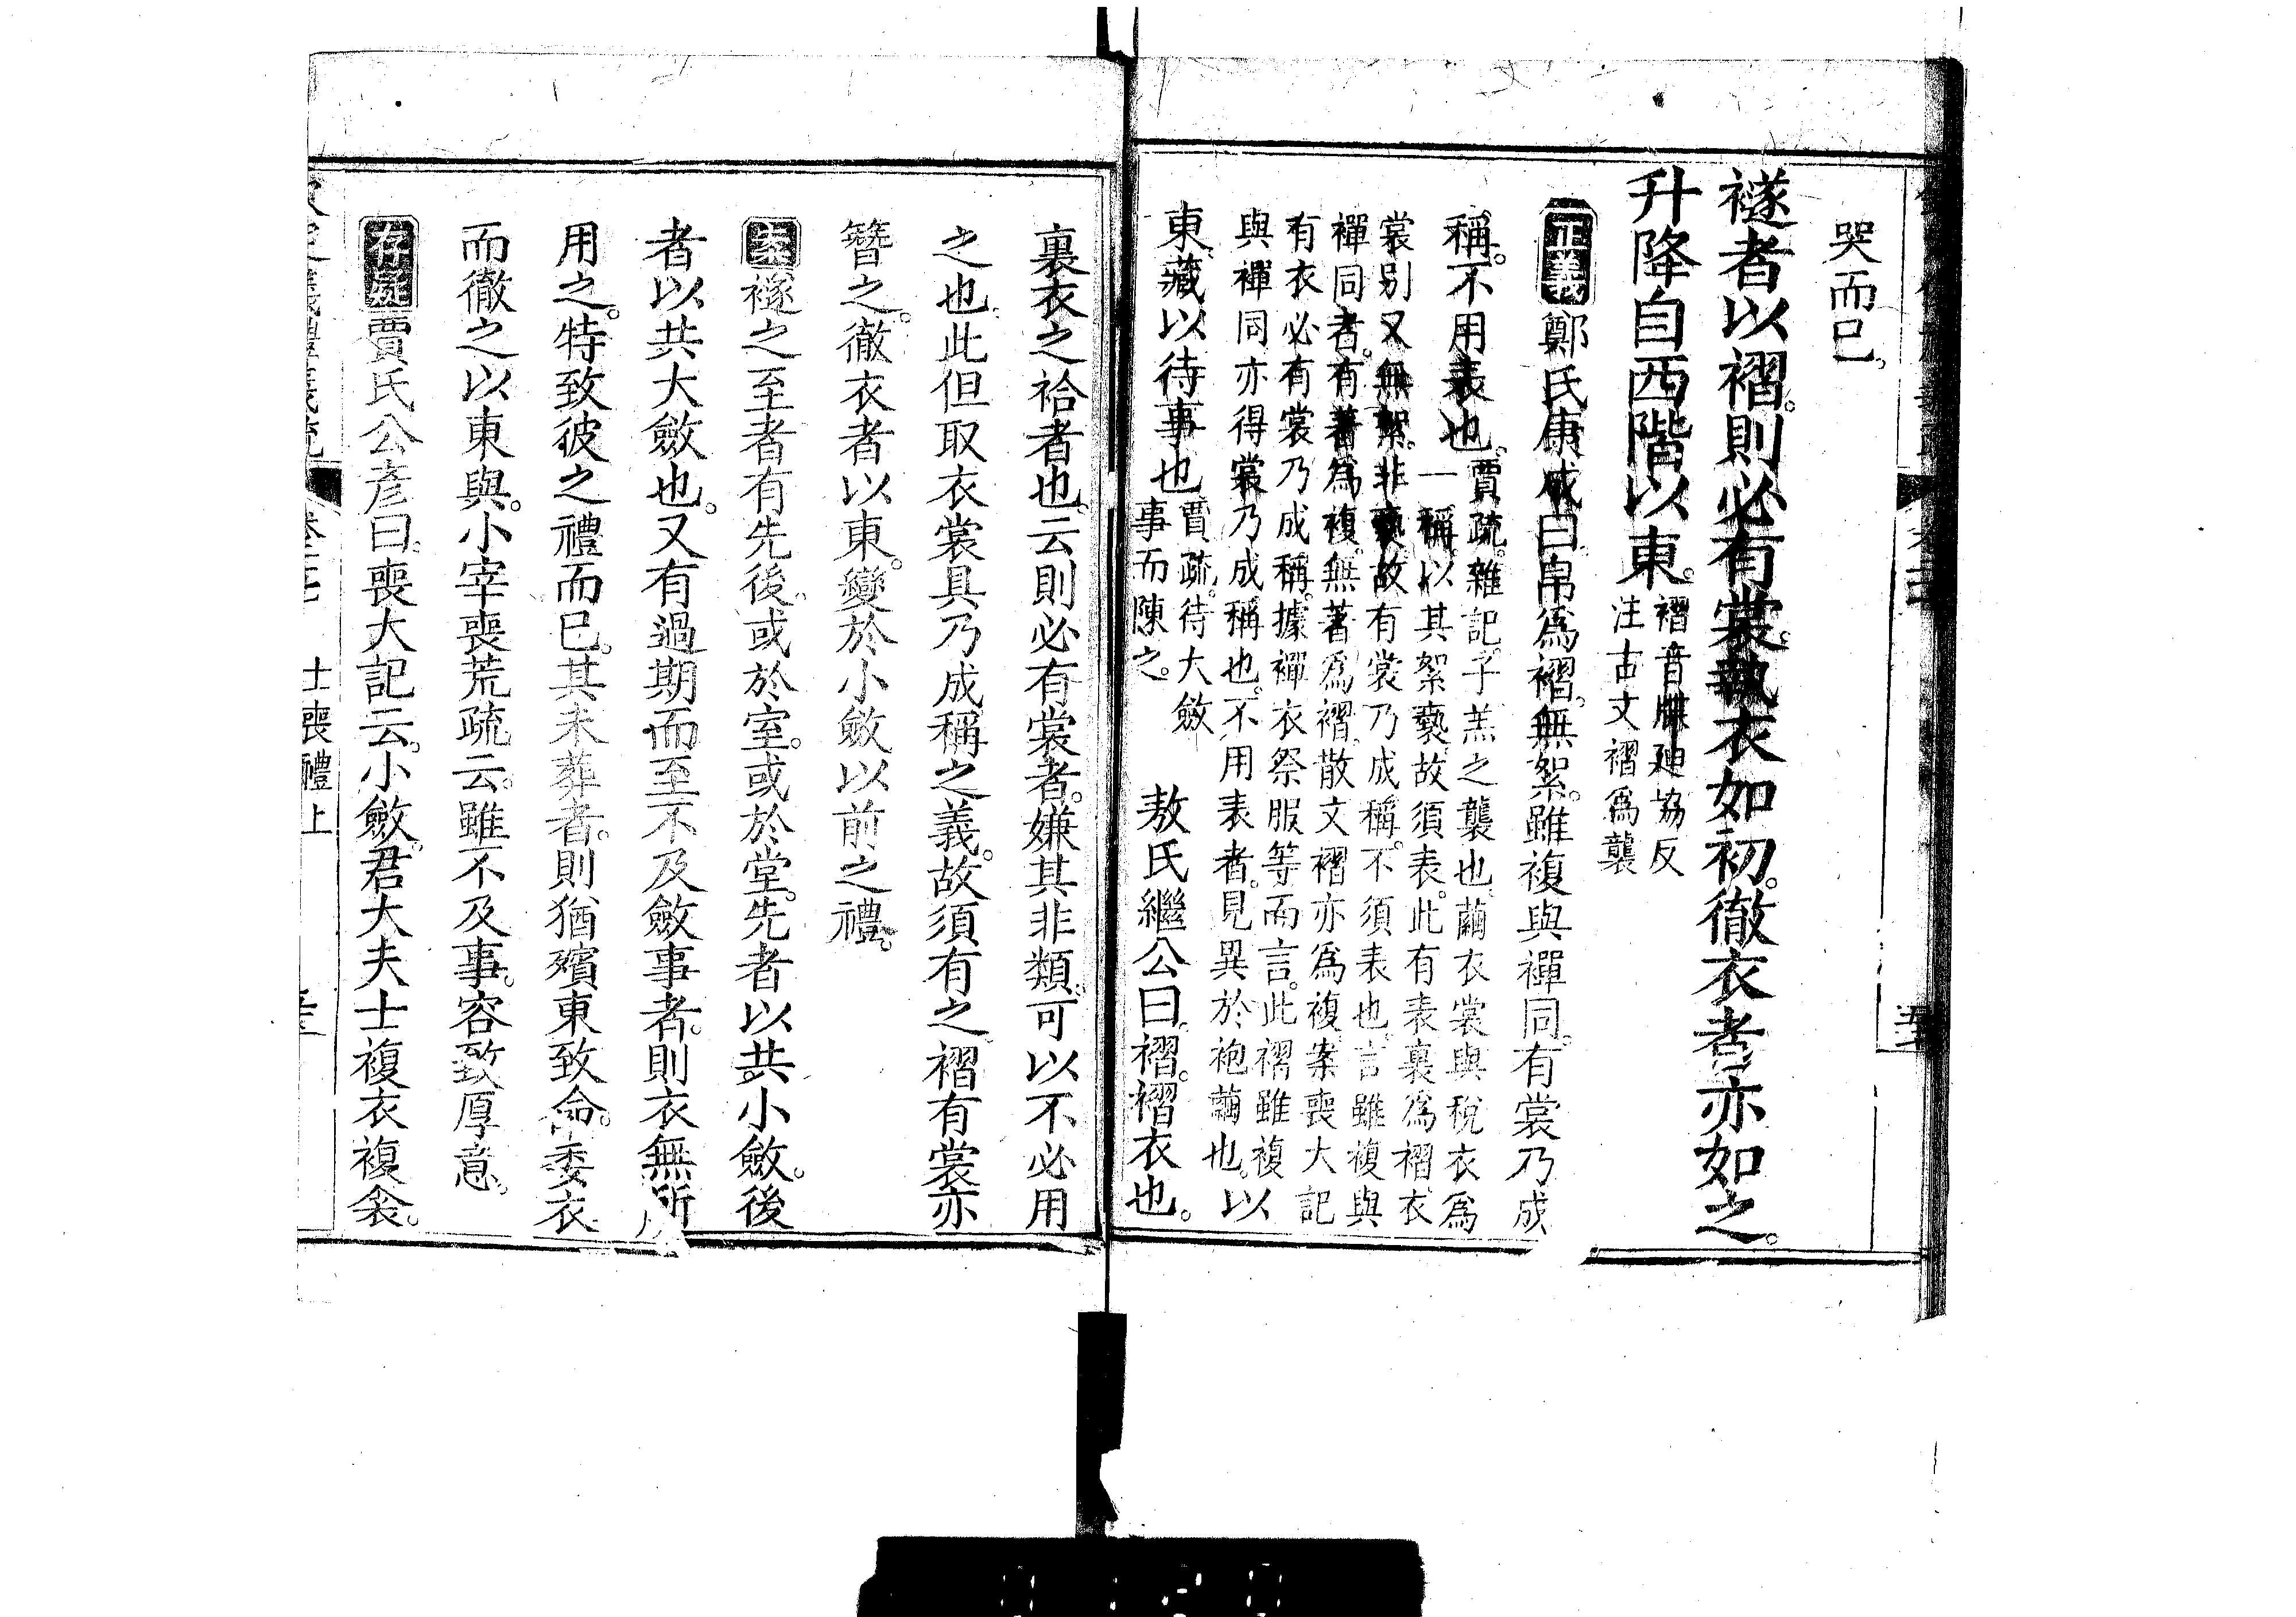 哭而已。
襚者以褶。則必有裳。執衣如初。徹衣者亦如之。
升降自西階以東。褶音牒廸協反
注古文褶爲襲
正義鄭氏康成曰。帛爲褶。無絮。雖複與襌同。有裳乃成
稱。不用表也。賈疏。雜記。子羔之襲也。繭衣裳與稅衣爲
一稱。以其絮褻。故須表。此有表裏爲褶衣
裳别又無絮。非褻。故有裳乃成稱。不須表也。言雖複與
襌同者。有著爲複。無著爲褶。散文褶亦爲複。案喪大記
有衣必有裳乃成稱。據襌衣祭服等而言。此褶雖複
與襌同亦得裳乃成稱也。不用表者。見異於袍繭也。以
東。藏以待事也賈疏。待大斂
事而陳之。敖氏繼公曰。褶。褶衣也。
裏衣之袷者也。云則必有裳者。嫌其非類。可以不必用
之也。此但取衣裳具乃成稱之義。故須有之。褶有裳亦
簪之。徹衣者以東。變於小斂以前之禮。
案襚之至者有先後。或於室。或於堂。先者以共小斂。後
者以共大斂也。又有過期而至不及斂事者。則衣無所
用之。特致彼之禮而已。其未葬者。則猶殯東致命。委衣
而徹之以東與。小宰喪荒疏云。雖不及事。容致厚意。
存疑賈氏公彥曰。喪大記云。小斂。君大夫士複衣複衾。
士喪禮上